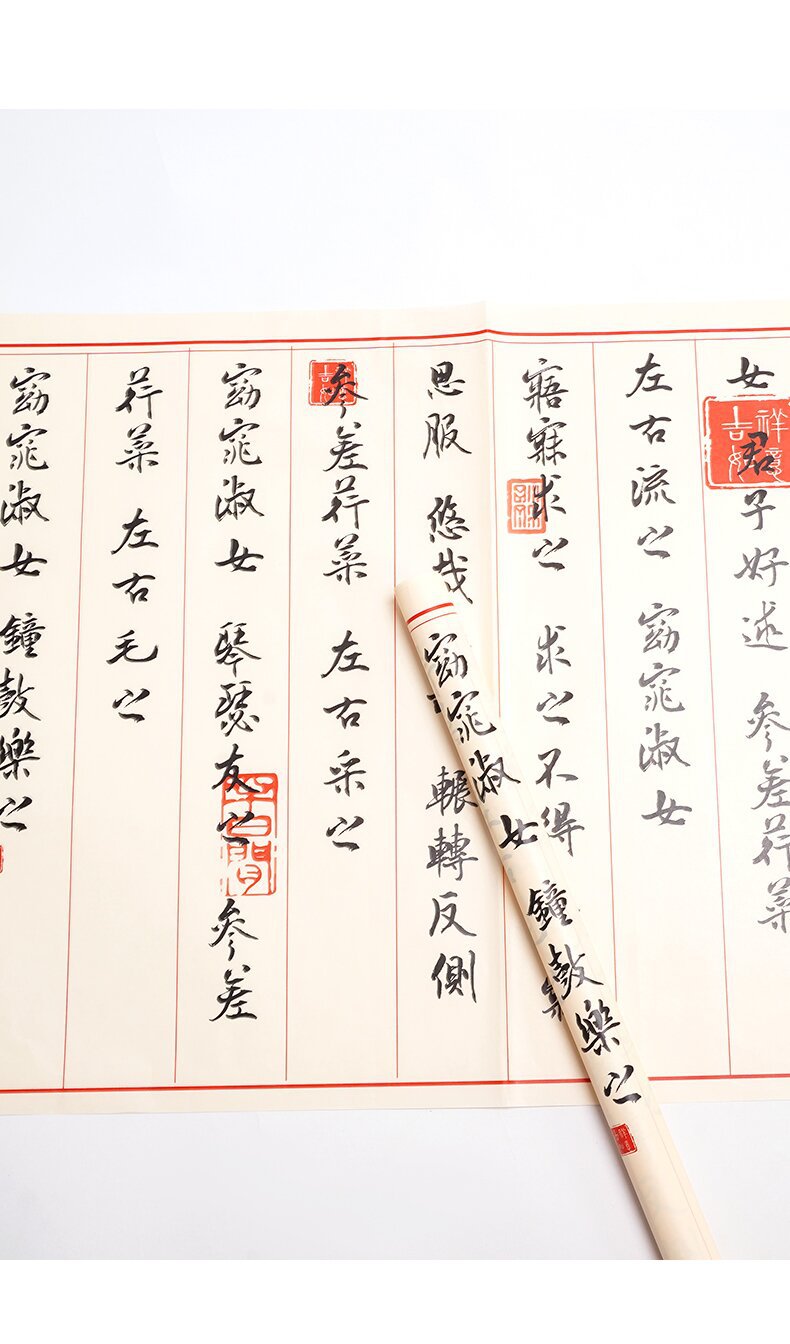 女 君子好逑 参差荇菜
左右流之 窈窕淑女
寤寐求之 求之不得
思服 悠哉 輾轉反側
参差荇菜 左右采之
窈窕淑女 琴瑟友之 参差
荇菜 左右毛之
窈窕淑女 鐘鼓樂之
窈窕淑女 鐘鼓樂之
吉祥如意
半日閒